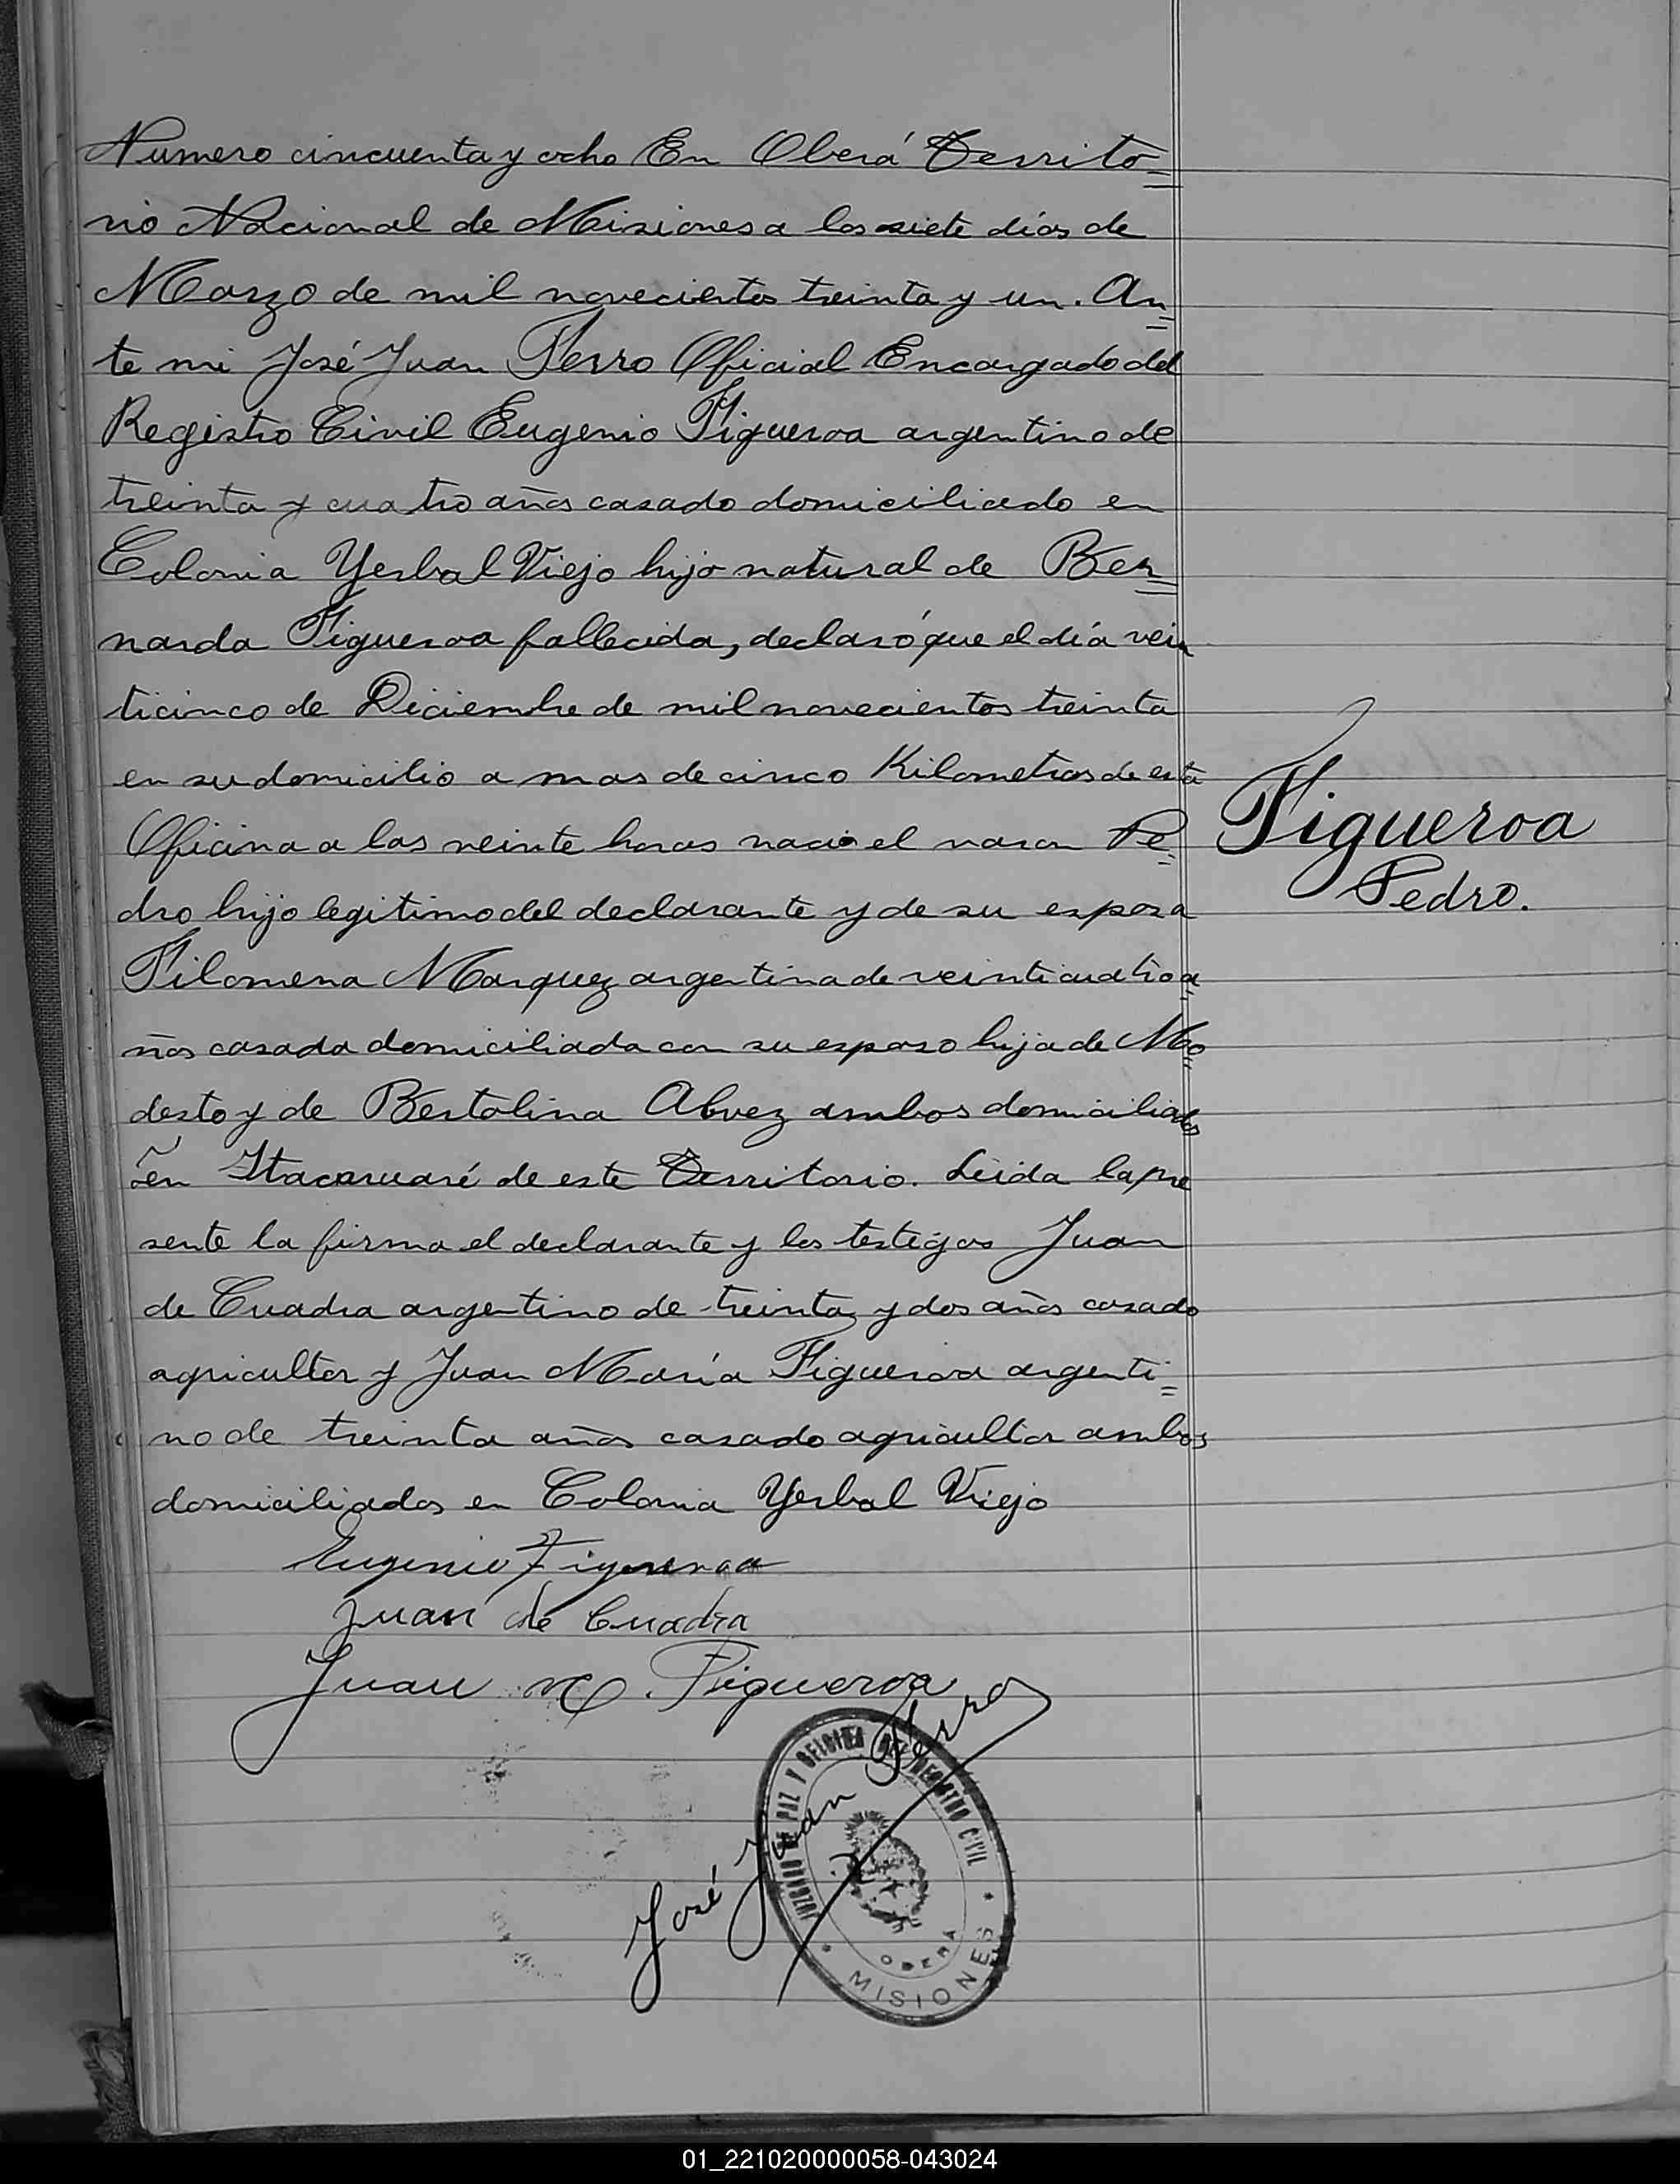 Numero cincuenta y ocho En Oberá Territo=
rio Nacional de Misiones a los siete dias de
Marzo de mil novecientos treinta y un. An=
te mi José Juan Ferro Oficial Encargado del
Registro Civil Eugenio Figueroa argentino de
treinta y cuatro años casado domiciliado en
Colonia Yerbal Viejo hijo natural de Ber=
narda Figueroa fallecida, declaró que el día vein
ticinco de Diciembre de mil novecientos treinta
en su domicilio a mas de cinco Kilometros de esta
Oficina a las veinte horas nació el varon Pe=
dro hijo legitimo del declarante y de su esposa
Filomena Marquez argentina de veinticuatro a=
ños casada domiciliada con su esposo hija de Mo=
desto y de Bertolina Alvez ambos domiciliados
en Itacaruaré de este Territorio. Leida la pre
sente la firma el declarante y los testigos Juan
de Cuadra argentino de treinta y dos años casado
agricultor y Juan María Figueroa argenti=
no de treinta años casado agricultor ambos
domiciliados en Colonia Yerbal Viejo
Figueroa
Pedro.
Eugenio Figueroa
Juan de Cuadra
Juan M. Figueroa
José Juan Ferro
JUZGADO DE PAZ Y OFICINA DEL REGISTRO CIVIL
OBERÁ
MISIONES
01_221020000058-043024